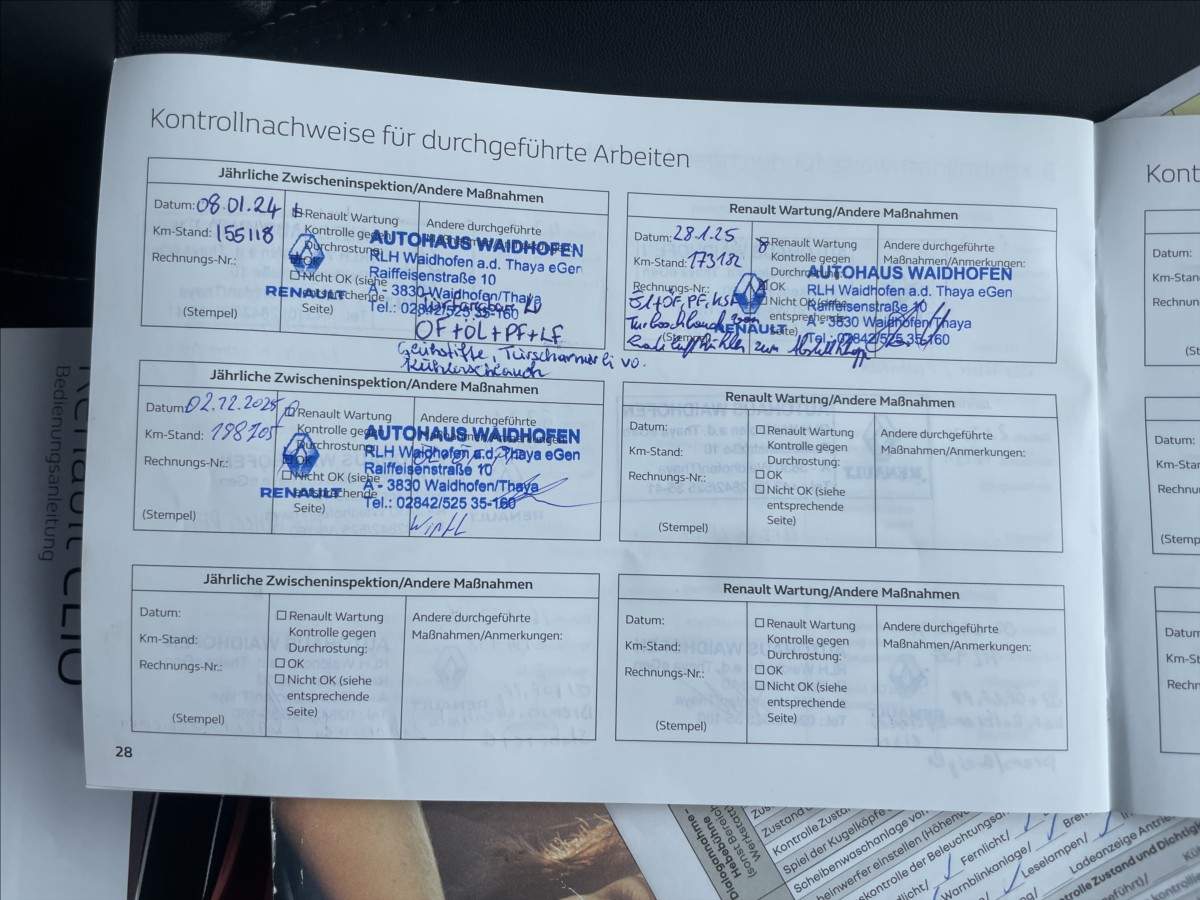 Kontrollnachweise für durchgeführte Arbeiten
Jährliche Zwischeninspektion/Andere Maßnahmen
Datum: 08.01.24
Km-Stand: 155118
Rechnungs-Nr.:
(Stempel)
Renault Wartung
Kontrolle gegen
Durchrostung:
OK
Nicht OK (siehe
entsprechende
Seite)
Andere durchgeführte
RENAULT
AUTOHAUS WAIDHOFEN
RLH Waidhofen a.d. Thaya eGen
Raiffeisenstraße 10
A - 3830 Waidhofen/Thaya
Tel.: 02842/525 35-160
OF+ÖL+PF+LF
Kühlerschlauch
Renault Wartung/Andere Maßnahmen
Datum: 28.1.25
Km-Stand: 173132
Rechnungs-Nr.:
Renault Wartung
Kontrolle gegen
OK
Nicht OK (siehe
entsprechende
Seite)
Andere durchgeführte
Maßnahmen/Anmerkungen:
RENAULT
AUTOHAUS WAIDHOFEN
RLH Waidhofen a.d. Thaya eGen
Raiffeisenstraße 10
A - 3830 Waidhofen/Thaya
Tel.: 02842/525 35-160
Jährliche Zwischeninspektion/Andere Maßnahmen
Datum: 02.12.2025
Km-Stand: 198705
Rechnungs-Nr.:
(Stempel)
Renault Wartung
Kontrolle gegen
Durchrostung:
OK
Nicht OK (siehe
entsprechende
Seite)
Andere durchgeführte
RENAULT
AUTOHAUS WAIDHOFEN
RLH Waidhofen a.d. Thaya eGen
Raiffeisenstraße 10
A - 3830 Waidhofen/Thaya
Tel.: 02842/525 35-160
Renault Wartung/Andere Maßnahmen
Datum:
Km-Stand:
Rechnungs-Nr.:
(Stempel)
Renault Wartung
Kontrolle gegen
Durchrostung:
OK
Nicht OK (siehe
entsprechende
Seite)
Andere durchgeführte
Maßnahmen/Anmerkungen:
Jährliche Zwischeninspektion/Andere Maßnahmen
Datum:
Km-Stand:
Rechnungs-Nr.:
(Stempel)
Renault Wartung
Kontrolle gegen
Durchrostung:
OK
Nicht OK (siehe
entsprechende
Seite)
Andere durchgeführte
Maßnahmen/Anmerkungen:
Renault Wartung/Andere Maßnahmen
Datum:
Km-Stand:
Rechnungs-Nr.:
(Stempel)
Renault Wartung
Kontrolle gegen
Durchrostung:
OK
Nicht OK (siehe
entsprechende
Seite)
Andere durchgeführte
Maßnahmen/Anmerkungen:
28
Kont
Datum:
Km-Stan
Rechnun
Datum:
Km-Sta
Rechnu
(Stemp
Datum
Km-St
Rechn
Renault CLIO
Bedienungsanleitung
Dialogannahme
Hebebühne
Kontrolle Zusta
Spiel der Kugelköpfe
Scheibenwaschanlage vo
Fernlicht/
Warnblinkanlage/
Leselampen/
Ladeanzeige Antrie